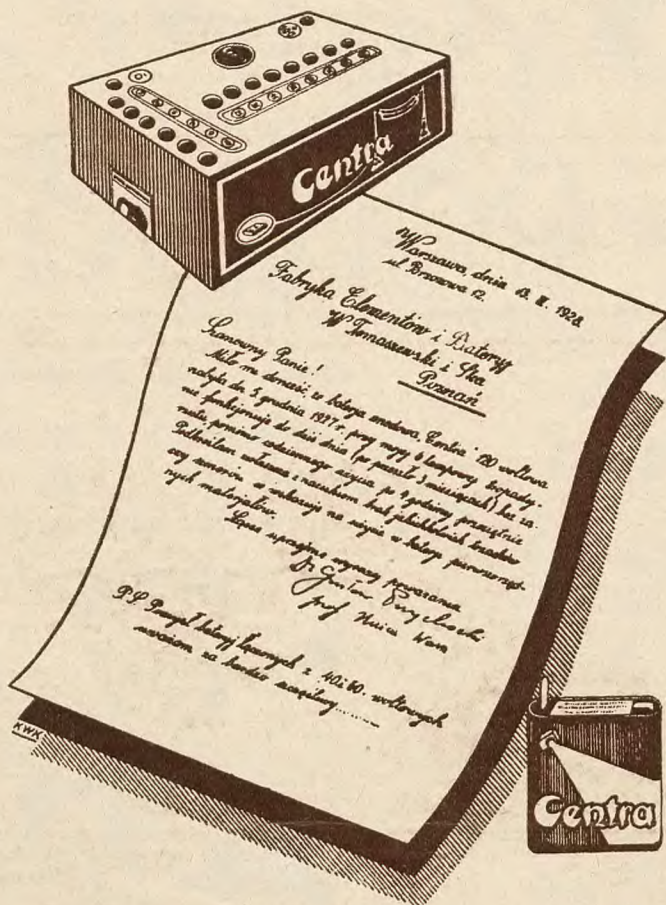 Centra
Warszawa, dnia 13. 1928
ul. Brzozowa 12.
Fabryka Elementów i Bateryj
W Tomaszewski i Ska
Poznań
Szanowny Panie!
Miło mi donieść, że baterja anodowa "Centra" 120 woltowa
nabyta dn. 5 grudnia 1927 r. przy mojej 6 lampowej tropady-
nie funkcjonuje do dziś dnia (po przeszło 3 miesiącach) bez za-
rzutu pomimo codziennego użycia po 4 godziny przeciętnie
Podkreślam zwłaszcza z naciskiem brak jakichkolwiek trzasków
czy szmerów, co wskazuje na użycie w baterji pierwszorzęd-
nych materjałów.
Łączę uprzejme wyrazy poważania
Dr Gustaw Przychocki
prof Uniw Warsz
P.S. Pomysł bateryj łączonych z 40 i 60. woltowych
uważam za bardzo szczęśliwy......
KWK
Centra